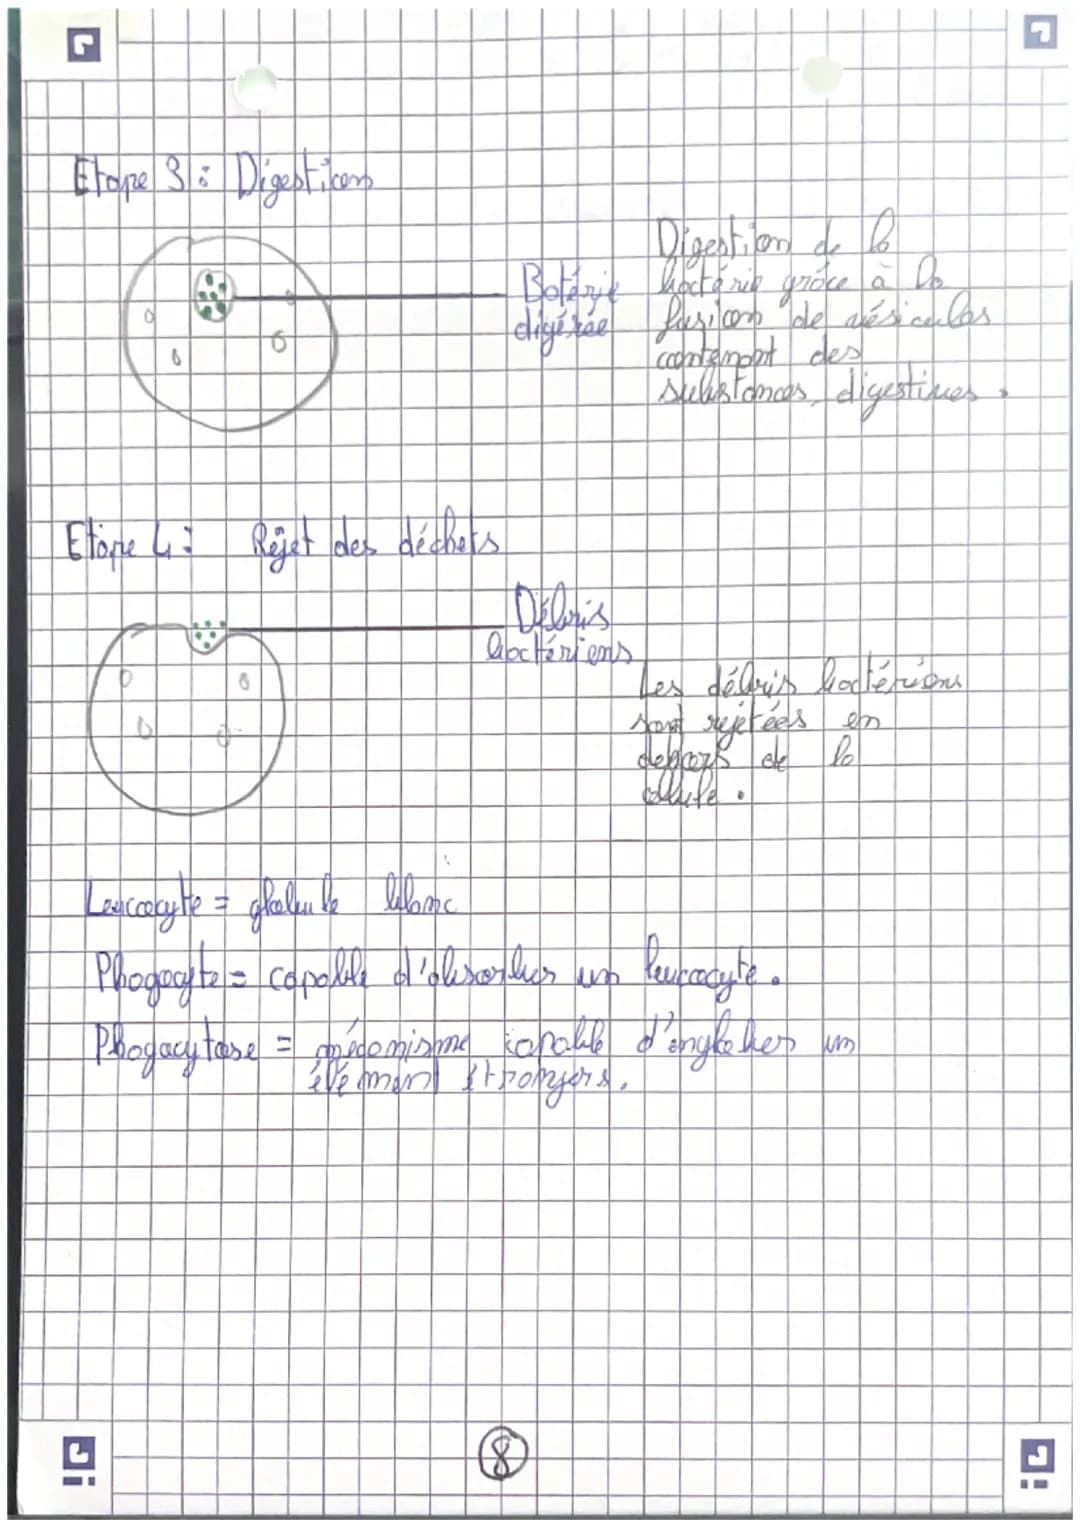 Etape 3 : Digestion
Digestion de la
Batérie bactérie grâce à la
digérée fusion de vésicules
contenant des
substances digestives.
Etape 4 : Rejet des déchets
Débris
bactériens
Les débris bactériens
sont rejetées en
dehors de la
cellule.
Leucocyte = globule blanc
Phagocyte = capable d'absorber un leucocyte.
Phagacytose = mécanisme capable d'englober un
élément étrangers.
8